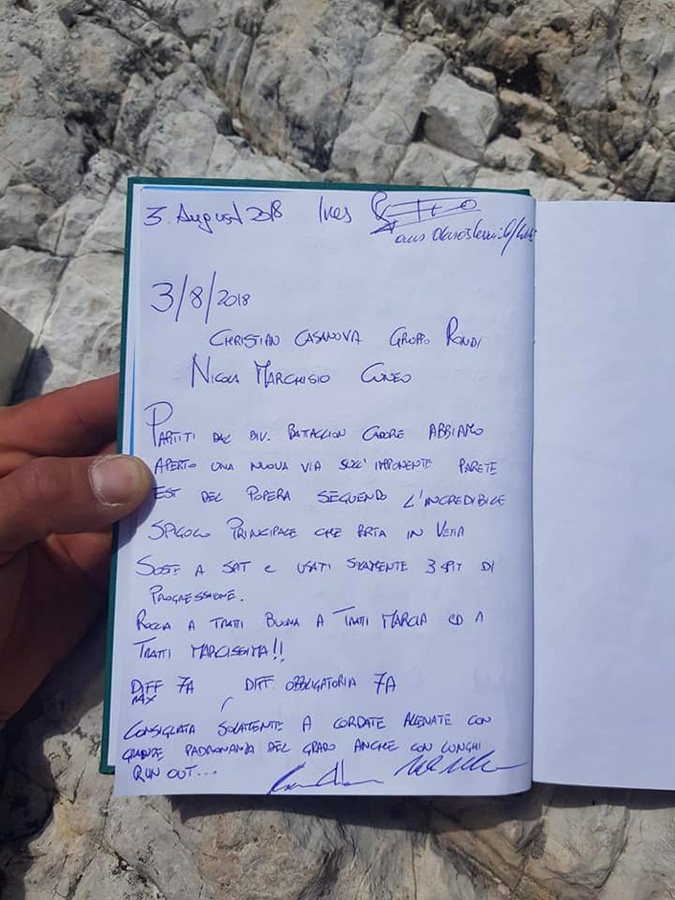 3. August 2018 Ines
aus
3/8/2018
CHRISTIAN CASANOVA GRUPPO RONDI
NICOLA MARCHISIO CUNEO
PARTITI DAL BIV. BATTAGLION CADORE ABBIAMO
APERTO UNA NUOVA VIA SULL'IMPONENTE PARETE
EST DEL POPERA SEGUENDO L'INCREDIBILE
SPIGOLO PRINCIPALE CHE PORTA IN VETTA
SOSTE A SPIT E USATI SOLAMENTE 3 SPIT DI
PROGRESSIONE.
ROCCIA A TRATTI BUONA A TRATTI MARCIA ED A
TRATTI MARCISSIMA!!
DIFF MAX 7A DIFF OBBLIGATORIA 7A
CONSIGLIATA SOLAMENTE A CORDATE ALLENATE CON
GRANDE PADRONANZA DEL GRADO ANCHE CON LUNGHI
RUN OUT...